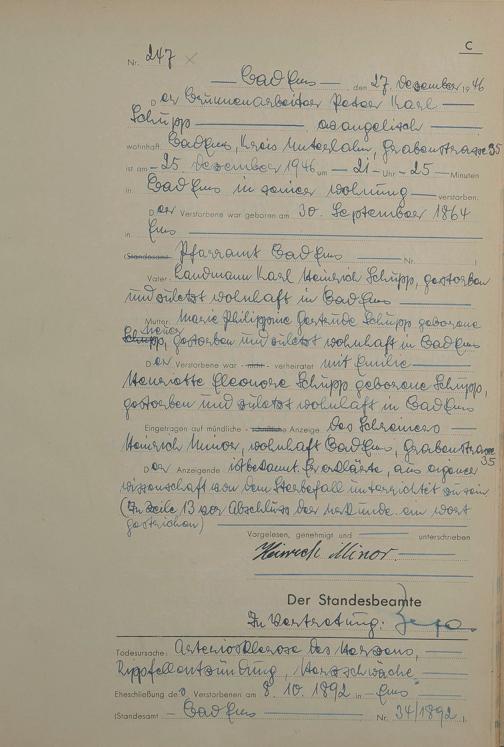 C
Nr. 247
Bad Ems den 27. Dezember 1946
Der Brunnenarbeiter Peter Karl
Schupp evangelisch
wohnhaft Bad Ems, Kreis Unterlahn, Grabenstrasse 35
ist am 25. Dezember 1946 um 21 Uhr 25 Minuten
in Bad Ems in seiner Wohnung verstorben.
Der Verstorbene war geboren am 30. September 1864
in Ems
(Standesamt Pfarramt Bad Ems Nr. )
Vater: Landmann Karl Heinrich Schupp, gestorben
und zuletzt wohnhaft in Bad Ems
Mutter: Marie Philippine Gertrude Schupp geborene
Schupp, gestorben und zuletzt wohnhaft in Bad Ems
Der Verstorbene war - nicht - verheiratet mit Emilie
Henriette Eleonore Schupp geborene Schupp,
gestorben und zuletzt wohnhaft in Bad Ems
Eingetragen auf mündliche - schriftliche Anzeige des Schreiners
Heinrich Minor, wohnhaft Bad Ems, Grabenstrasse
35
Der Anzeigende ist bekannt. Er erklärte, aus eigener
Wissenschaft von dem Sterbefall unterrichtet zu sein
(In Zeile 13 vor Abschluss der Urkunde ein Wort
gestrichen)
Vorgelesen, genehmigt und unterschrieben
Heinrich Minor.
Der Standesbeamte
In Vertretung:
Todesursache: Arteriosklerose des Herzens,
Rippfellentzündung, Herzschwäche
Eheschließung des Verstorbenen am 8. 10. 1892 in Ems
(Standesamt Bad Ems Nr. 34/1892 ).